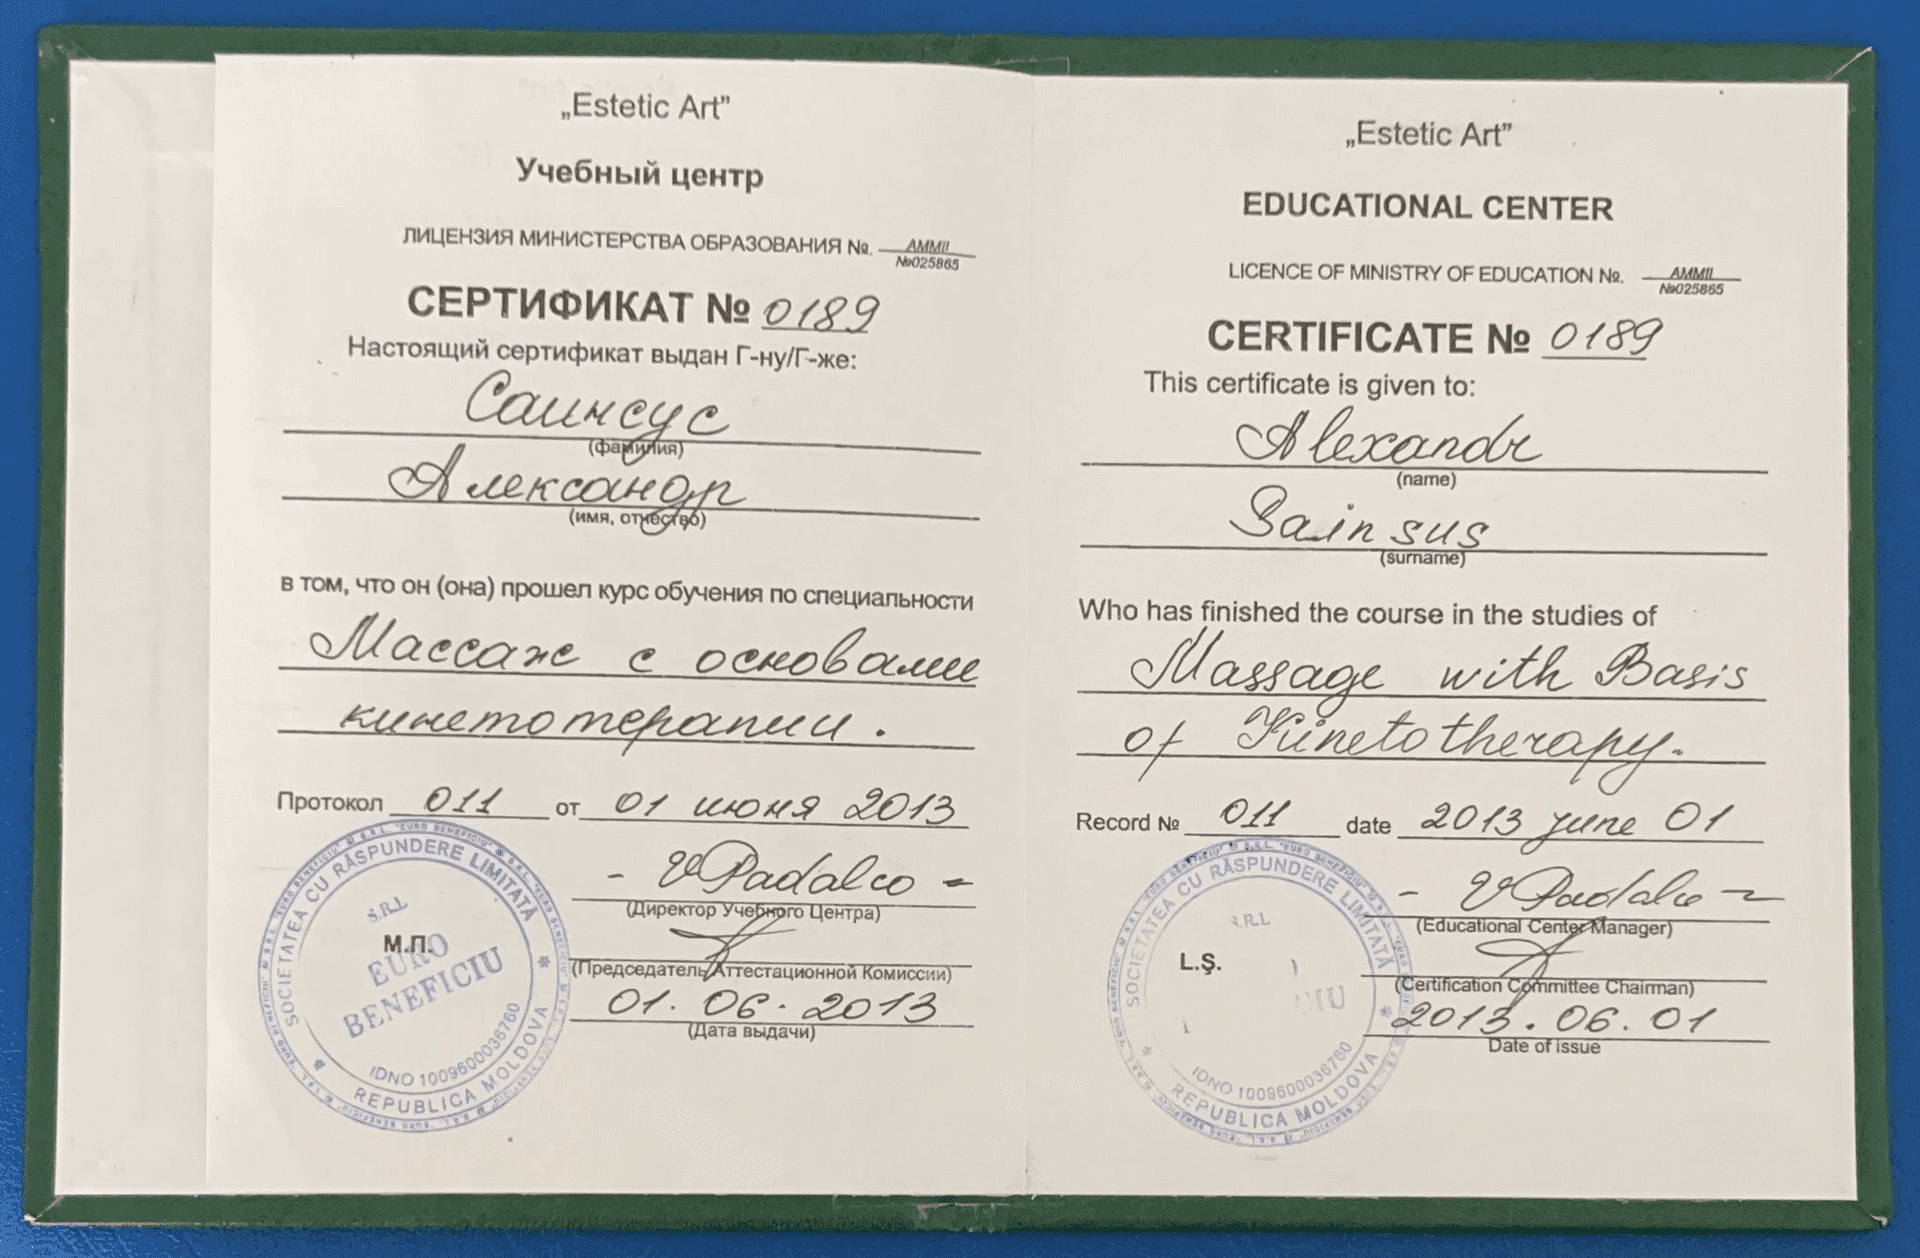 „Estetic Art”
Учебный центр
ЛИЦЕНЗИЯ МИНИСТЕРСТВА ОБРАЗОВАНИЯ №. АММII
№025865
СЕРТИФИКАТ № 0189
Настоящий сертификат выдан Г-ну/Г-же:
Саинсус
(фамилия)
Александр
(имя, отчество)
в том, что он (она) прошел курс обучения по специальности
Массаж с основами
кинетотерапии.
Протокол 011 от 01 июня 2013
- VPadalco -
(Директор Учебного Центра)
(Председатель Аттестационной Комиссии)
01.06.2013
(Дата выдачи)
М.П.
SOCIETATEA CU RĂSPUNDERE LIMITATĂ
S.R.L
EURO
BENEFICIU
IDNO 1009600036760
REPUBLICA MOLDOVA
„Estetic Art”
EDUCATIONAL CENTER
LICENCE OF MINISTRY OF EDUCATION №. AMMII
№025865
CERTIFICATE № 0189
This certificate is given to:
Alexandr
(name)
Sainsus
(surname)
Who has finished the course in the studies of
Massage with Basis
of Kinetotherapy.
Record № 011 date 2013 june 01
- VPadalco -
(Educational Center Manager)
(Certification Committee Chairman)
2013.06.01
Date of issue
L.Ş.
SOCIETATEA CU RĂSPUNDERE LIMITATĂ
S.R.L
CIU
IDNO 1009600036760
REPUBLICA MOLDOVA